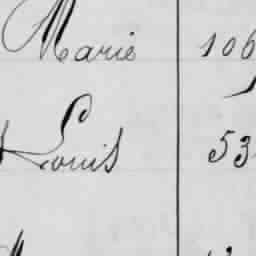 Marie 106
Louis 53